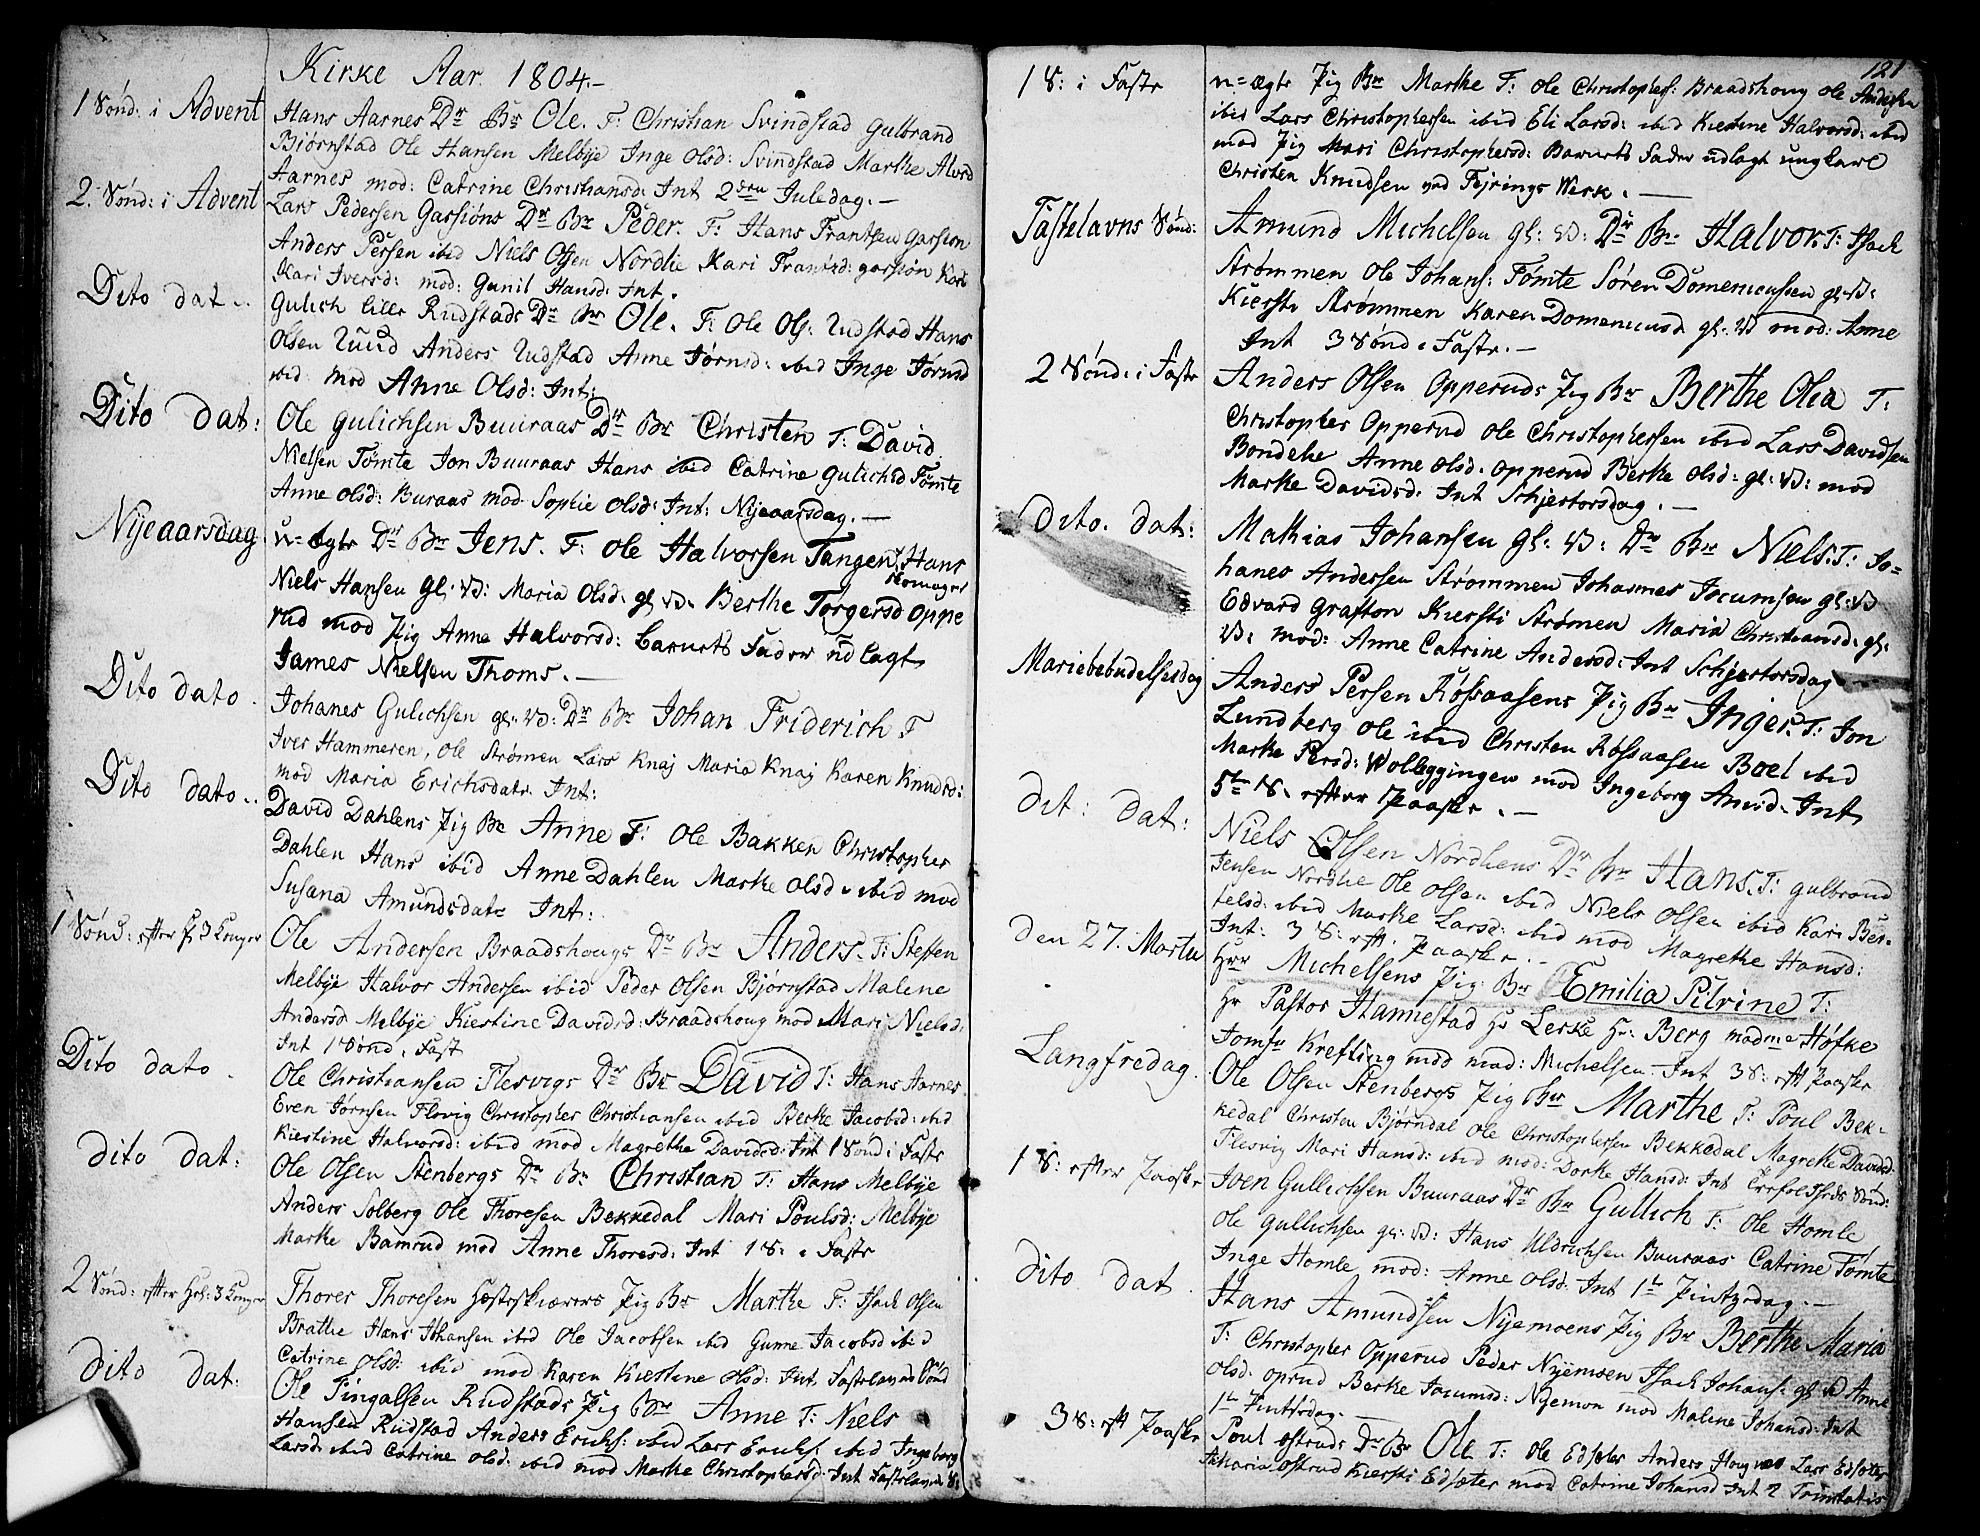 Kirke Aar 1804.-
1 Sønd: i Advent
Hans Aarnes Dr Br Ole. F: Christian Svindstad Gulbrand
Biørnstad Ole Hansen Melbye Inge Olsd: Svindstad Marthe Alvsd
Aarnes mod: Catrine Christiansd: Int 2den Juledag.-
2. Sønd: i Advent
Lars Pedersen Garsiøns Dr Br Peder. F: Hans Frantsen Garsion
Anders Persen ibid Niels Olsen Nordlie Kari Frantsd: garsiøn Kari
Kari Iversd: mod: Gunil Hansd: Int.
Dito dat..
Gulich Lille Rudstads Dr Br Ole. F: Ole Ols: Udstad Hans
Olsen Ruud Anders Udstad Anne Jørnsd: ibid Inge Jørnsd
ibid mod Anne Olsd: Int:
Dito dat:
Ole Gulichsen Buuraas Dr Br Christen F: David
Nielsen Tømte Jon Buuraas Hans ibid Catrine Gulichsd Tømte
Anne Olsd: Buraas mod Sophie Olsd: Int: Nyeaarsdag.-
Nyeaarsdag
u=ægte Dr Br Jens. F: Ole Halvorsen Tangen, Hans
Skomager
Niels Hansen gl: V: Maria Olsd: gl V. Berthe Torgersd Oppe
rud mod Pig Anne Halvorsd: Barnets Fader udlagt
James Nielsen Thoms.-
Dito dato.
Johanes Gulichsen gl: V: Dr Br Johan Friderich F
Iver Hammeren, Ole Strømen Lars Knaj Maria Knaj Karen Knudsd:
mod Maria Erichsdatr Int:
Dito dato..
David Dahlens Pig Br Anne F: Ole Bakken Christopher
Dahlen Hans ibid Anne Dahlen Marke Olsd: ibid mod
Susana Amundsdatr Int:
1 Sønd: efter H 3 Konger
Ole Andersen Braadshougs Dr Br Anders. F: Steffen
Melbye Halvor Andersen ibid Peder Olsen Bjørnstad Malene
Andersd Melbye Kiestine Davidsd: Braadshoug mod Mari Nielsd.
Int 1 Sønd: Fast
Dito dato.
Ole Christiansen Flesvigs Dr Br David F: Hans Aarnes
Even Jørnsen Flovig Christopher Christiansen ibid Berke Jacobsd: ibd
Kiestine Halvorsd: ibid mod Magrethe Davidsd: Int 1 Sønd i Faste
dito dat:
Ole Olsen Stenbergs Dr Br Christian F: Hans Melbye
Anders Solberg Ole Thoresen Bekkedal Mari Poulsd: Melbye
Marke Bamrud mod Anne Thoresd: Int 1 S: i Faste
2 Sønd: efter Hel: 3 Konger
Thorer Thoresen Hesteskiærers Pig Br Marthe F: Isach Olsen
Brathe Hans Johansen ibid Ole Jacobsen ibd Gunne Jacobsd ibid
Catrine Olsd: ibid mod Karen Kiestine Olsd: Int Fastelavns Sønd
dito dat:
Ole Fingalsen Rudstads Pig Br Anne F: Niels
Hansen Rudstad Anders Erichs: ibid Lars Erichs: ibid Ingeborg
Larsd: ibid Catrine Olsd: ibid mod Marke Christophersd: Int Fastelavns S:
121
1 S: i Faste
u=ægte Pig Br Marthe F: Ole Christophers: Braadshoug Ole Andersen
ibid Lars Christophersen ibid Eli Larsd: ibid Kiestine Halvorsd: ibid
mod Pig Mari Christophersd: Barnets Fader udlagt ungkarl
Christen Knudsen ved Fejrings Werk.-
Fastelavns Sønd:
Amund Michelsen gl: V: Dr Br Halvor. F: Isach
Strømmen Ole Johans: Tømte Søren Domenicussen gl: V:
Kiersti Strømmen Karen Domenicusd gl: V mod: Anne
Int 3 Sønd i Faste.-
2 Sønd: i Faste
Anders Olsen Opperuds Pig Br Berthe Olia F:
Christopher Opperud Ole Christophersen ibid Lars Davidsen
Bondehe Anne Olsd. Opperud Berke Olsd: gl: V: mod
Marke Davidsd: Int Schjertorsdag.-
Dito. dat:
Mathias Johansen gl: V: Dr Br Niels. F: Jo=
hanes Andersen Strømmen Johannes Jocumsen gl: V
Edvard Grafton Kiersti Strømen Maria Christiansd: gl:
V: mod: Anne Catrine Andersd: Int Schjertorsdag
Mariebebudelsesdag
Anders Persen Røssaasens Pig Br Inger. F: Jon
Lundberg Ole ibid Christen Røssaasen Boel ibid
Marke Persd: Wolleggingen mod Ingeborg Amsd. Int
5te S. efter Paaske.-
dit: dat:
Niels Olsen Nordliens Dr Br Hans. F: Gulbrand
Jensen Nordlie Ole Olsen ibid Niels Olsen ibid Kari Ber-
telsd: ibid Marke Larsd: ibid mod Magrethe Hansd:
Int: 3 S: eft. Paaske.-
den 27. Martii
Herr Michelsens Pig: Br Emilia Petrine F:
Hr Pastor Hannestad Hr Lerke Hr: Berg madme Høfke
Jomfr Krefting mod mad: Michelsen Int 3 S: eft Paaske
Langfredag.
Ole Olsen Stenbergs Pig Br Marthe F: Poul Bek-
kedal Christen Bjørndal Ole Christophersen Bekkedal Magreke Davidsd:
Flesvig Mari Hansd: ibid mod: Dorke Hansd: Int Trefoldheds Sønd:
1 S: efter Paaske
Iven Gullichsen Buuraas Dr Br Gullich F: Ole Homle
Ole Gullichsen gl: V: Hans Uldrichsen Buuraas Catrine Tømte
Inge Homle mod: Anne Olsd: Int 1te Pintzedag.-
dito dat.
Hans Amundsen Nyemoens Pig Br Berthe Maria
F: Christopher Opperud Peder Nyemoen Isach Johans: gl V Anne
Olsd: Oprud Berke Jocumsd: Nyemon mod Malene Johansd: Int
1te Pintsedag.-
3 S: eft Paaske
Poul Østruds Dr Br Ole F: Ole Edsæter Anders Houg Lars Edsæter
Maria Østrud Kiersti Edsæter mod Catrine Johansd Int 2 Trinitatis